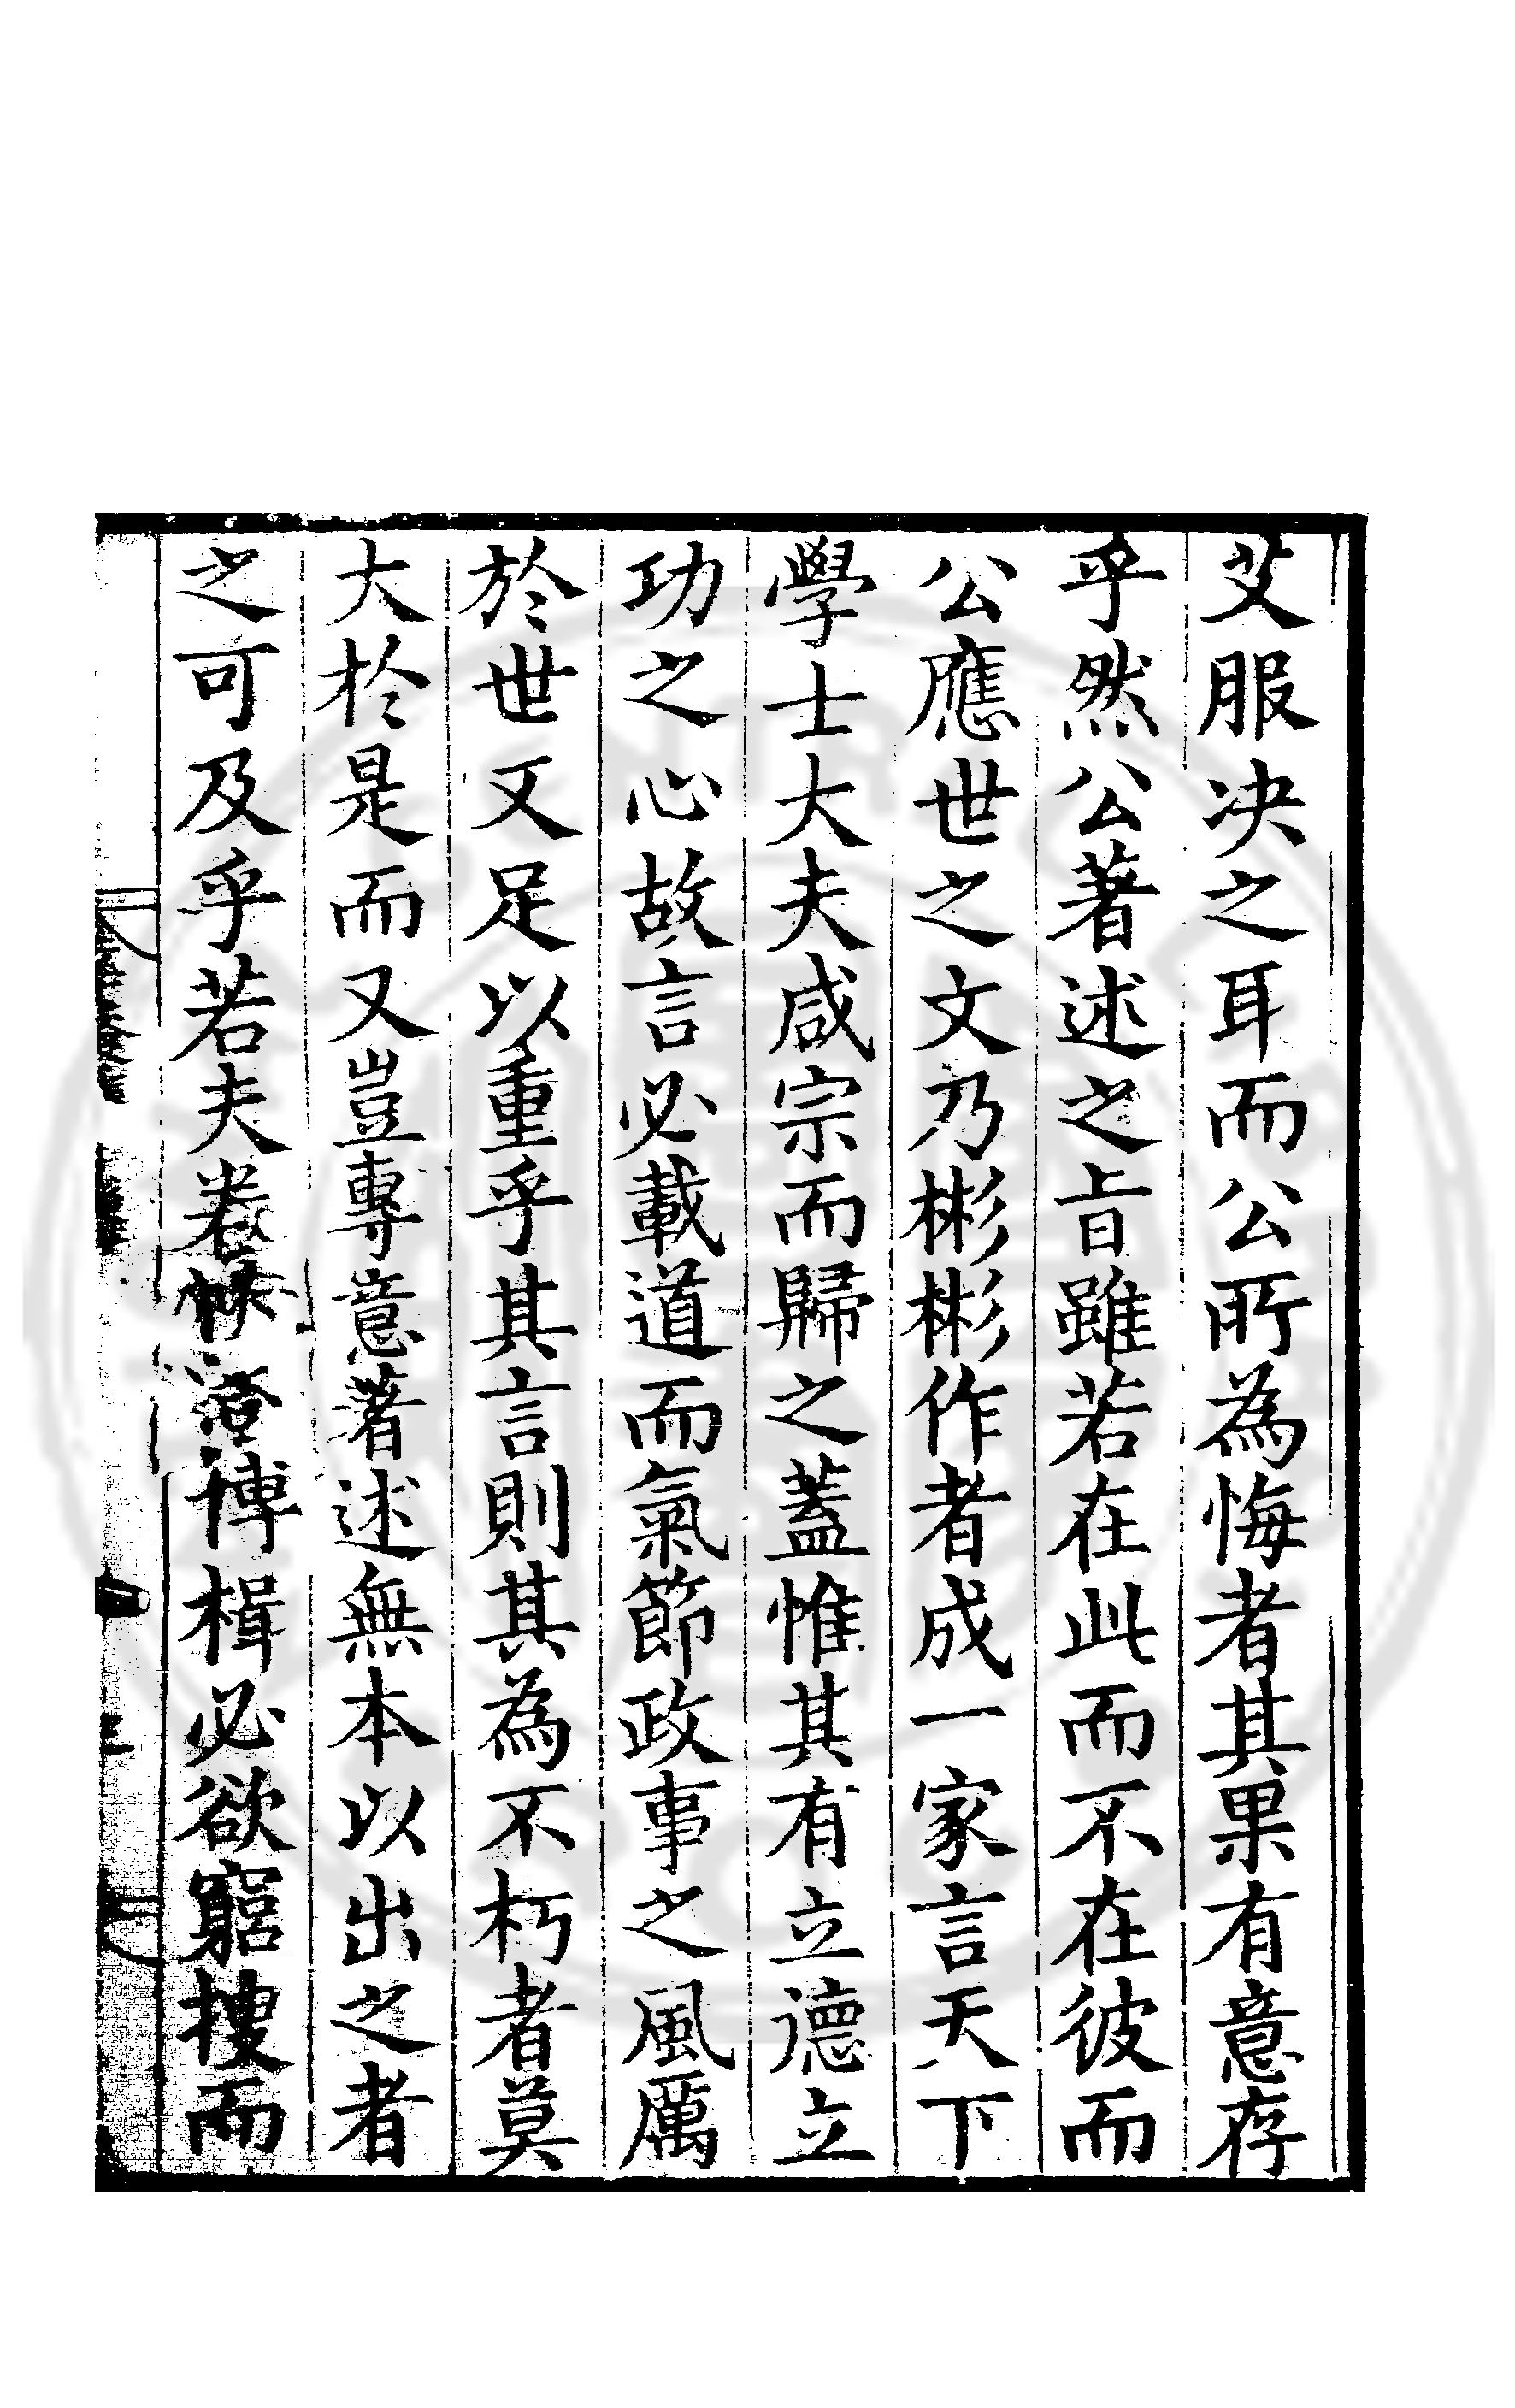 艾服决之耳而公所為悔者其果有意存
乎然公著述之旨雖若在此而不在彼而
公應世之文乃彬彬作者成一家言天下
學士大夫咸宗而歸之蓋惟其有立德立
功之心故言必載道而氣節政事之風厲
於世文足以重乎其言則其為不朽者莫
大於是而又豈專意著述無本以出之者
之可及乎若夫卷帙博楫必欲窮搜而
三